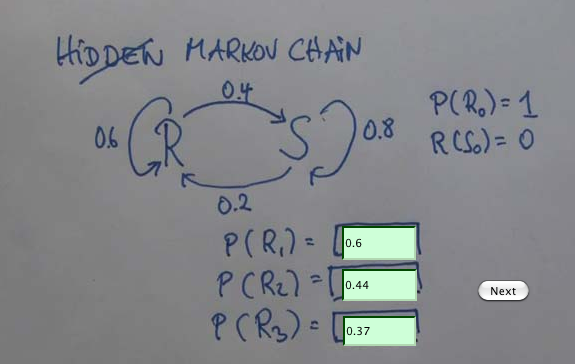 HIDDEN MARKOV CHAIN
0.4
0.6 R S 0.8
0.2
P(R₀) = 1
R(S₀) = 0
P(R₁) = 0.6
P(R₂) = 0.44
P(R₃) = 0.37
Next